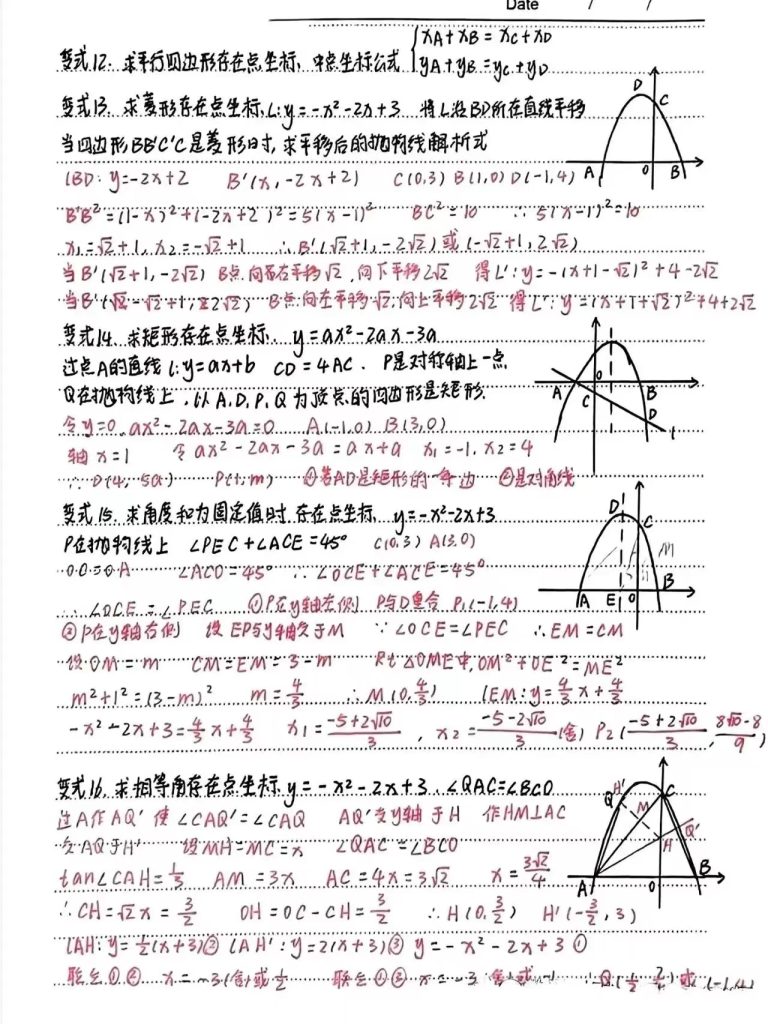 Date / /
变式12. 求平行四边形存在点坐标、中点坐标公式 { xA+xB=xC+xD
yA+yB=yC+yD
变式13. 求菱形存在点坐标, L:y=-x²-2x+3 将L沿BD所在直线平移
当四边形BB'C'C是菱形时, 求平移后的抛物线解析式
D C A B
lBD: y=-2x+2 B'(x, -2x+2) C(0,3) B(1,0) D(-1,4)
B'B²=(1-x)²+(-2x+2)²=5(x-1)² BC²=10 ∴5(x-1)²=10
x₁=√2+1, x₂=-√2+1 ∴B'(√2+1, -2√2)或(-√2+1, 2√2)
当B'(√2+1, -2√2) B点向右平移√2, 向下平移2√2 得L': y=-(x+1-√2)²+4-2√2
当B'(-√2+1, 2√2) B点向左平移√2, 向上平移2√2 得L': y=(x+1+√2)²+4+2√2
变式14. 求矩形存在点坐标. y=ax²-2ax-3a
过点A的直线l:y=ax+b CD=4AC. P是对称轴上一点
Q在抛物线上, 以A.D.P.Q为顶点的四边形是矩形.
A O B C D l
令y=0, ax²-2ax-3a=0 A(-1,0) B(3,0)
轴x=1 令ax²-2ax-3a=ax+a x₁=-1, x₂=4
∴D(4, 5a) P(1,m) ①若AD是矩形的一条边 ②是对角线
变式15. 求角度和为固定值时, 存在点坐标, y=-x²-2x+3
P在抛物线上 ∠PEC+∠ACE=45° C(0,3) A(3,0)
D C M A E O B
OC=OA ∠ACO=45° ∴∠OCE+∠ACE=45°
∴∠OCE=∠PEC ①P在y轴左侧 P与D重合 P₁(-1,4)
②P在y轴右侧 设EP与y轴交于M ∵∠OCE=∠PEC ∴EM=CM
设OM=m CM=EM=3-m Rt△OME中, OM²+OE²=ME²
m²+1²=(3-m)² m=4/3 ∴M(0,4/3) lEM:y=4/3x+4/3
-x²-2x+3=4/3x+4/3 x₁=(-5+2√10)/3, x₂=(-5-2√10)/3(舍) P₂((-5+2√10)/3, (8√10-8)/9)
变式16. 求相等角存在点坐标, y=-x²-2x+3. ∠QAC=∠BCO
过A作AQ' 使∠CAQ'=∠CAQ AQ'交y轴于H 作HM⊥AC
交AQ于H' 设MH=MC=x ∠QAC=∠BCO
Q H' C M Q' H A O B
tan∠CAH=1/3 AM=3x AC=4x=3√2 x=3√2/4
∴CH=√2x=3/2 OH=OC-CH=3/2 ∴H(0,3/2) H'(-3/2,3)
lAH:y=1/2(x+3)② lAH':y=2(x+3)③ y=-x²-2x+3①
联立①② x=-3(舍)或1/2 联立①③ x=-3(舍)或-1 ∴Q(1/2, 7/4)或(-1,4)